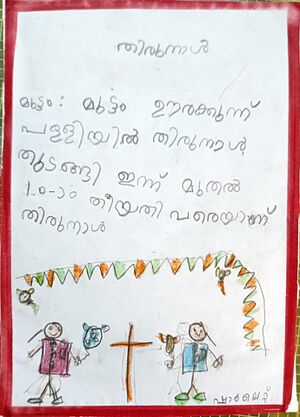 തിരുനാൾ
മുട്ടം: മുട്ടം ഊരക്കുന്ന്
പള്ളിയിൽ തിരുനാൾ
തുടങ്ങി ഇന്ന് മുതൽ
10-ാം തീയതി പരെയാണ്
തിരുനാൾ
ഷാർലെറ്റ്